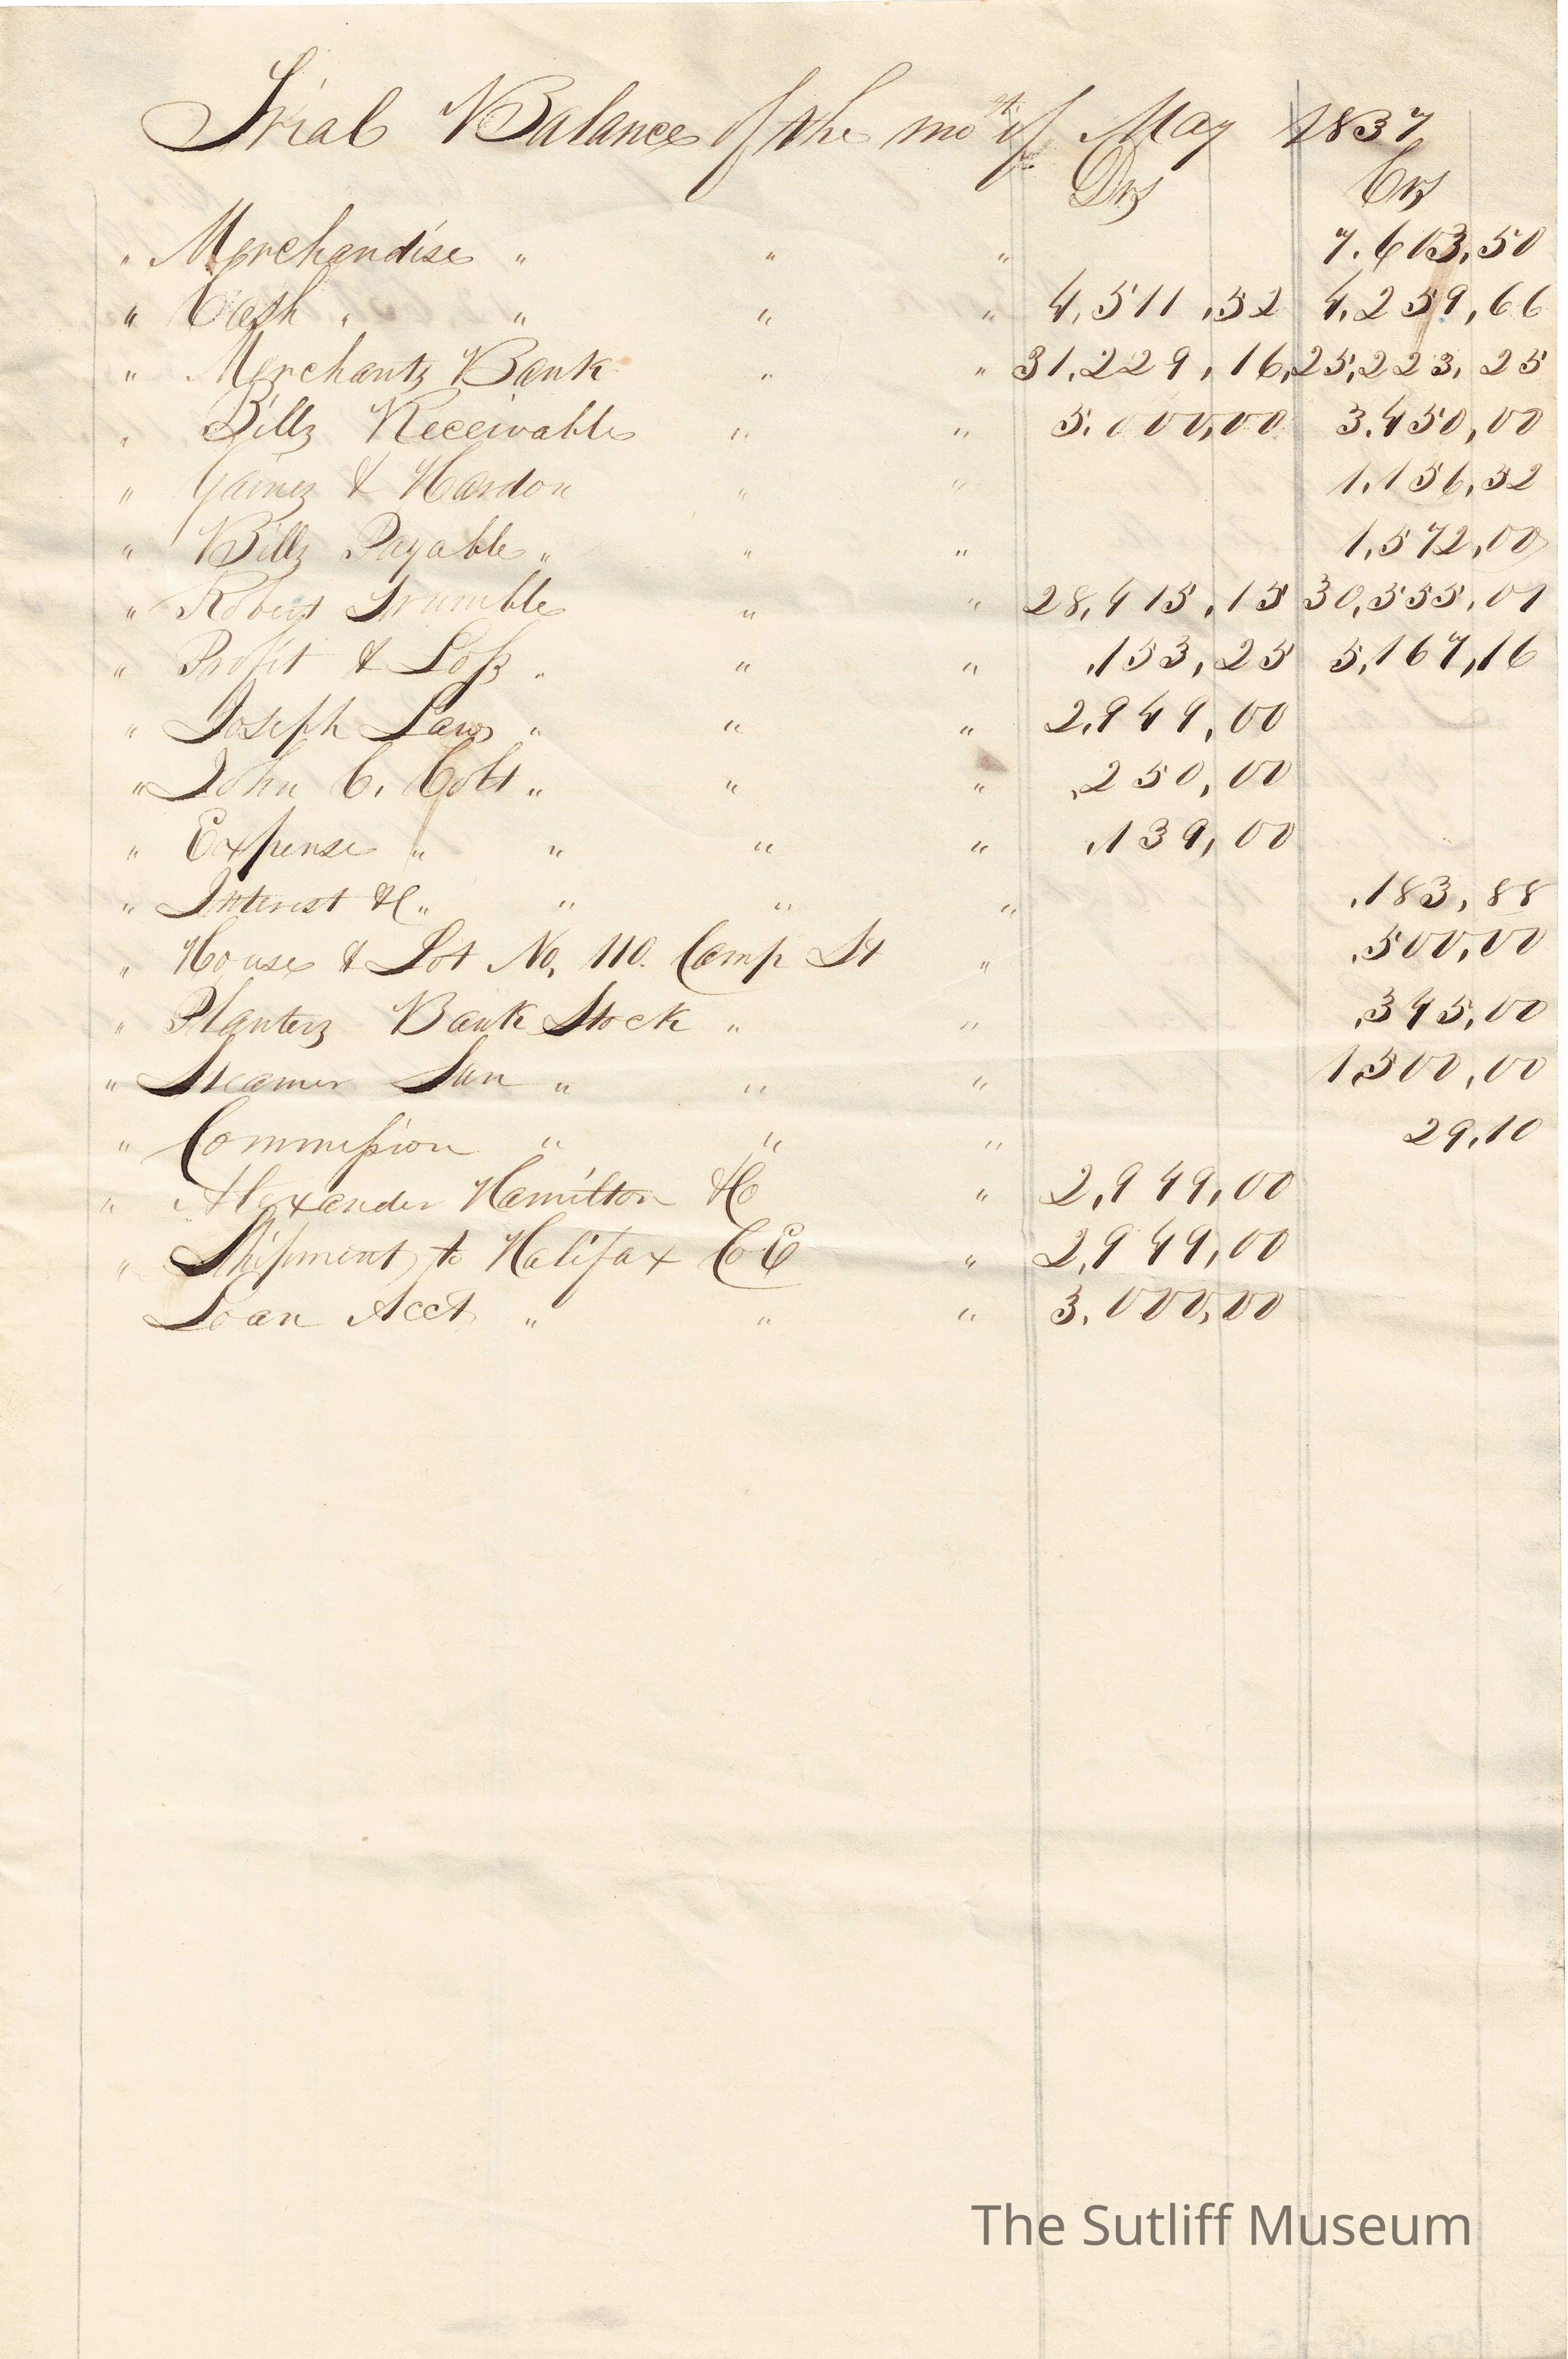 Trial Balance of the mo^th of May 1837
Drs Crs
" Merchandise " " " 7.603,50
" Cash " " " " 4,511,52 4,259,66
" Merchants Bank " " 31,229,16, 25,223,25
" Bills Receivable " " 5.000,00 3.450,00
" Gaines & Hardon " " 1,156,52
" Bills Payable " " " 1,572,00
" Robert Trumble " " 28,415,15 30,555,01
" Profit & Loss " " " ,153,25 5,167,16
" Joseph Laws " " " 2,949,00
" John C. Colt " " " ,250,00
" Expense " " " " ,139,00
" Interest &c " " " " ,183,88
" House & Lot No, 110. Camp St " ,500,00
" Planters Bank Stock " " ,345,00
" Steamer Sun " " " 1,500,00
" Commission " " " 29,10
" Alexander Hamilton &Co " 2,949,00
" Shipment to Halifax Co E " 2,949,00
Loan Acct " " " 3.000,00
The Sutliff Museum